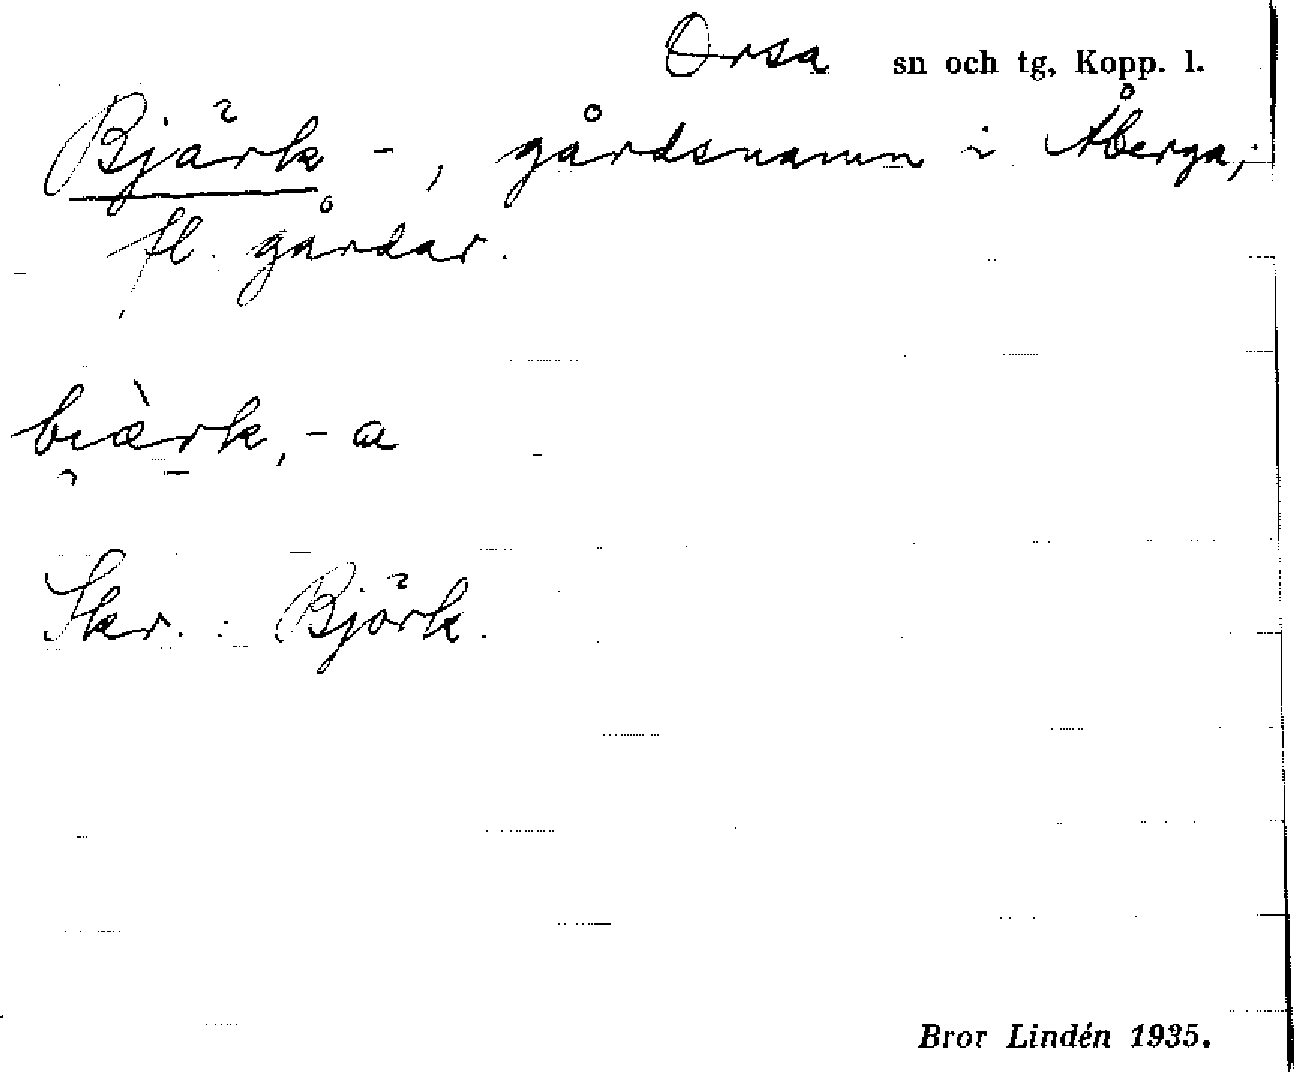 Orsa sn och tg, Kopp. l.
Bjärk-, gårdsnamn i Åberga;
fl. gårdar.
bi̯ὰrk, -a
Skr.: Björk.
Bror Lindén 1935.